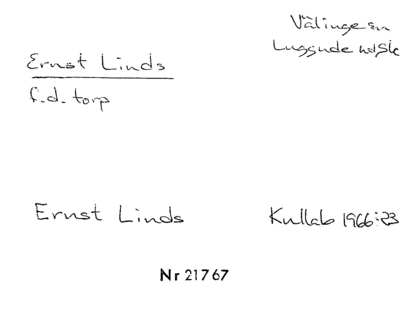 Välinge sn
Luggude hd Sk
Ernst Linds
f.d. torp
Ernst Linds
Kullab 1966:23
Nr 21767